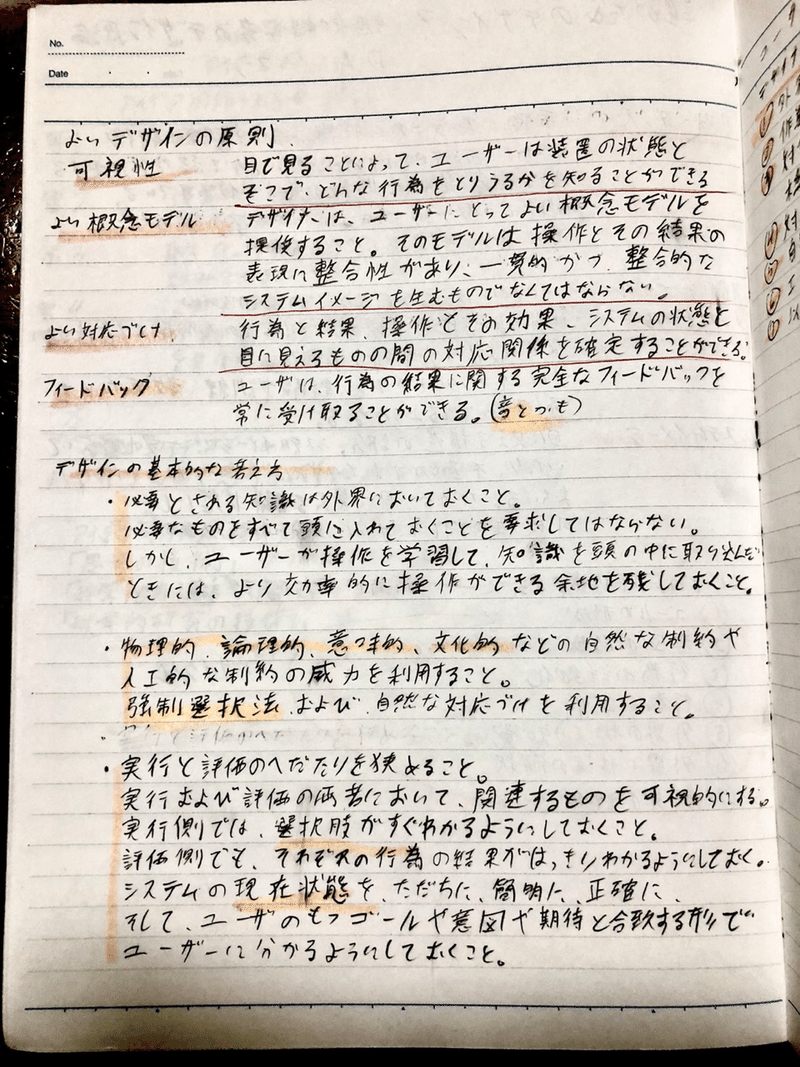 No.
Date
よいデザインの原則
可視性 目で見ることによって、ユーザーは装置の状態と
そこで、どんな行為をとりうるかを知ることができる
よい概念モデル デザイナーは、ユーザーにとってよい概念モデルを
提供すること。そのモデルは操作とその結果の
表現に整合性があり、一貫的かつ、整合的な
システムイメージを生むものでなくてはならない。
よい対応づけ 行為と結果、操作とその効果、システムの状態と
目に見えるものの間の対応関係を確定することができる。
フィードバック ユーザは、行為の結果に関する完全なフィードバックを
常に受け取ることができる。(音とつも)
デザインの基本的な考え方
・必要とされる知識は外界においておくこと。
必要なものをすべて頭に入れておくことを要求してはならない。
しかし、ユーザーが操作を学習して、知識を頭の中に取り込んだ
ときには、より効率的に操作ができる余地を残しておくこと。
・物理的、論理的、意味的、文化的などの自然な制約や
人工的な制約の威力を利用すること。
強制選択法、および自然な対応づけを利用すること。
・実行と評価のへだたりを狭めること。
実行および評価の両者において、関連するものを可視的にする。
実行側では、選択肢がすぐわかるようにしておくこと。
評価側でも、それぞれの行為の結果がはっきりわかるようにしておく。
システムの現在状態を、ただちに、簡明に、正確に、
そして、ユーザのもつゴールや意図や期待と合致する形で
ユーザーに分かるようにしておくこと。